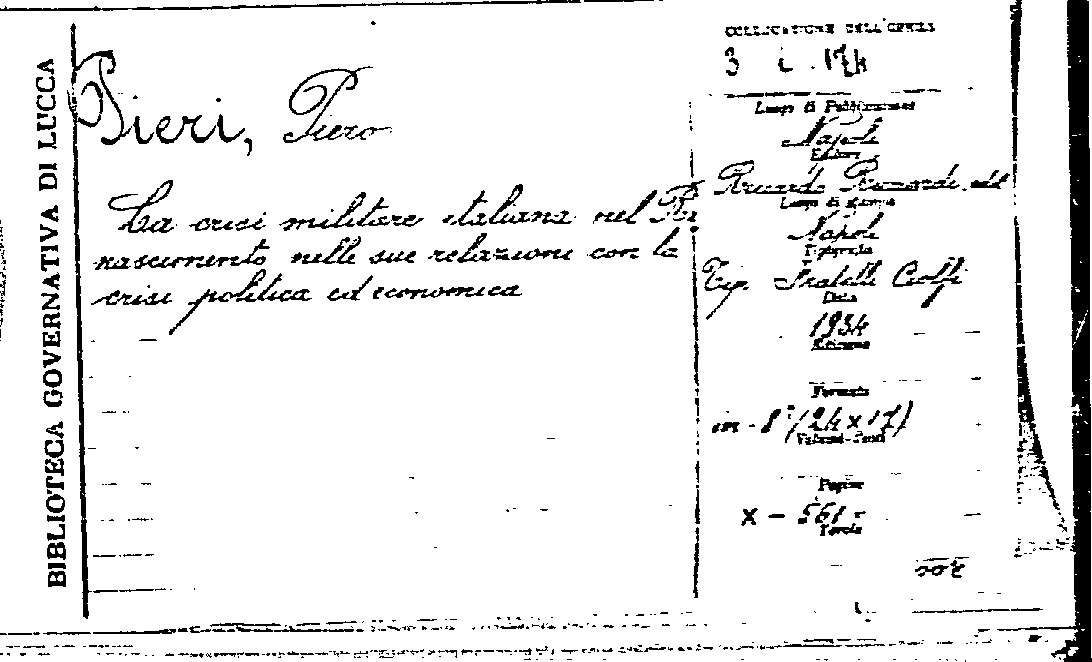 BIBLIOTECA GOVERNATIVA DI LUCCA
Pieri, Piero
La crisi militare italiana nel Ri
nascimento nelle sue relazioni con la
crisi politica ed economica
COLLOCAZIONE DELL'OPERA
3 i. 174
Luogo di Pubblicazione
Napoli
Editore
Riccardo Ricciardi edit
Luogo di stampa
Napoli
Tipografia
Tip. Fratelli Cioffi
Data
1934
Edizione
Formato
in - 8° (24 x 17)
Volumi-Tomi
Pagine
X - 561 -
Tavole